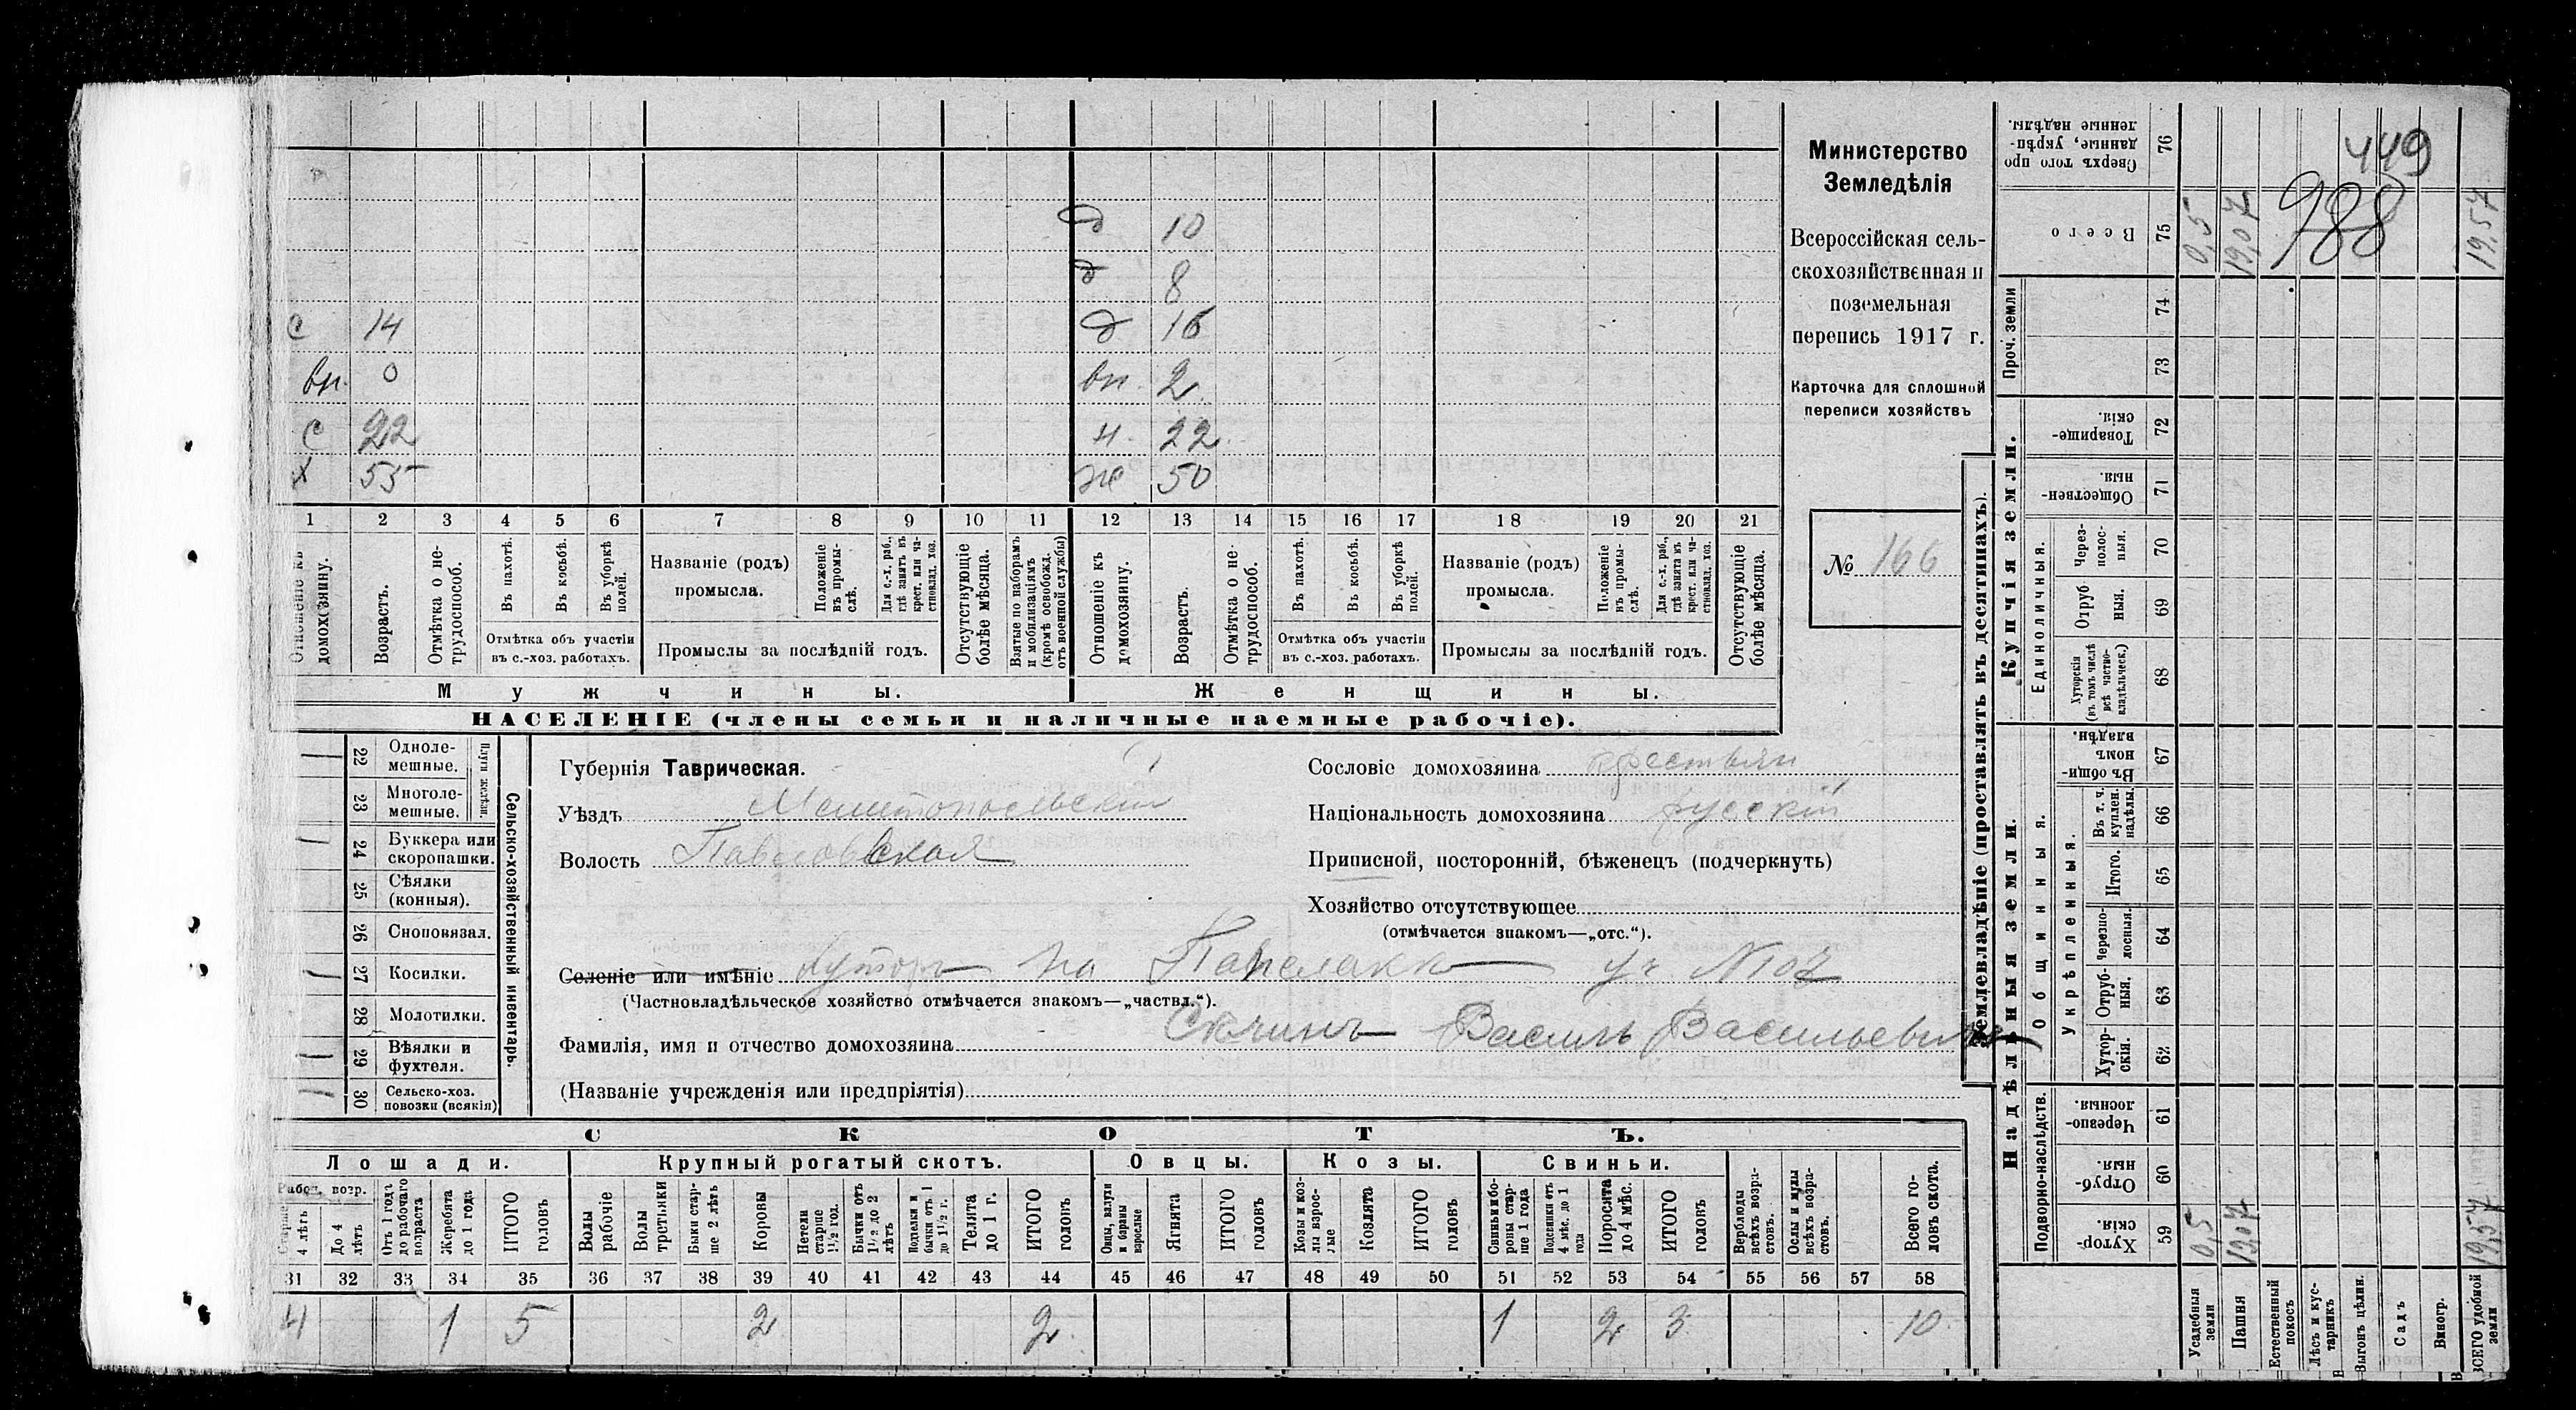 449
988
Министерство
Земледѣлія
Всероссійская сель-
скохозяйственная и
поземельная
перепись 1917 г.
Карточка для сплошной
переписи хозяйствъ
№ 166
д 10
д 8
с 14 д 16
вн. 0 вн. 2
с 22 н. 22
х 55 же 50
1 2 3 4 5 6 7 8 9 10 11 12 13 14 15 16 17 18 19 20 21
Отношеніе къ домохозяину.
Возрастъ.
Отмѣтка о не-трудоспособ.
Въ пахотѣ.
Въ косьбѣ.
Въ уборкѣ полей.
Отмѣтка объ участіи
въ с.-хоз. работахъ.
Названіе (родъ)
промысла.
Положеніе въ промы-слѣ.
Для с.-х. раб., гдѣ занятъ въ крест. или ча-стновлад. хоз.
Промыслы за послѣдній годъ.
Отсутствующіе болѣе мѣсяца.
Взятые по наборамъ и мобилизаціямъ (кромѣ освобожд. отъ военной службы)
Отношеніе къ домохозяину.
Возрастъ.
Отмѣтка о не-трудоспособ.
Въ пахотѣ.
Въ косьбѣ.
Въ уборкѣ полей.
Отмѣтка объ участіи
въ с.-хоз. работахъ.
Названіе (родъ)
промысла.
Положеніе въ промы-слѣ.
Для с.-х. раб., гдѣ занята въ крест. или ча-стновлад. хоз.
Промыслы за послѣдній годъ.
Отсутствующіе болѣе мѣсяца.
Мужчины. Женщины.
НАСЕЛЕНІЕ (члены семьи и наличные наемные рабочіе).
Сельско-хозяйственный инвентарь.
Плуги желѣзн.
1 22 Одноле-мешные.
23 Многоле-мешные.
1 24 Буккера или скоропашки.
25 Сѣялки (конныя).
26 Сноповязал.
1 27 Косилки.
28 Молотилки.
1 29 Вѣялки и фухтеля.
1 30 Сельско-хоз. повозки (всякія)
Губернія Таврическая.
Уѣздъ Мелитопольскій
Волость Павловская
Сословіе домохозяина крестьян
Національность домохозяина русскій
Приписной, посторонній, бѣженецъ (подчеркнуть)
Хозяйство отсутствующее
(отмѣчается знакомъ—„отс.“).
Селеніе или имѣніе хуторъ на уч N107
(Частновладѣльческое хозяйство отмѣчается знакомъ—„частвл.“).
Фамилія, имя и отчество домохозяина Василь Васильевич
(Названіе учрежденія или предпріятія)
СКОТЪ.
Лошади. Крупный рогатый скотъ. Овцы. Козы. Свиньи.
Рабоч. возр.
Старше 4 лѣтъ
До 4 лѣтъ
Отъ 1 года до рабочаго возраста
Жеребята до 1 года
ИТОГО головъ
Волы рабочіе
Волы третьяки
Быки стар-ше 2 лѣтъ
Коровы
Нетели старше 1½ год.
Бычки отъ 1½ до 2 лѣтъ
Подтелки и бычки отъ 1 до 1½ г.
Телята до 1 г.
ИТОГО головъ
Овцы, валухи и бараны взрослые
Ягнята
ИТОГО головъ
Козы и коз-лы взрос-лые
Козлята
ИТОГО головъ
Свиньи и бо-ровы стар-ше 1 года
Подсвинки отъ 4 мѣс. до 1 года
Поросята до 4 мѣс.
ИТОГО головъ
Верблюды всѣхъ возра-стовъ.
Ослы и мулы всѣхъ возра-стовъ.
Всего го-ловъ скота.
31 32 33 34 35 36 37 38 39 40 41 42 43 44 45 46 47 48 49 50 51 52 53 54 55 56 57 58
4 1 5 2 2 1 2 3 10
Землевладѣніе (проставлять въ десятинахъ).
Надѣльныя земли. Купчія земли.
Проч. земли
Подворно-наслѣдств.
Общинныя.
Укрѣпленныя.
Единоличныя.
76 Сверхъ того про данные, укрѣп-ленные надѣлы.
75 Всего 0,5 19,07 19,57
74
73
72 Товарище-скія.
71 Обществен-ныя.
70 Через-полос-ныя.
69 Отруб ныя.
68 Хуторскія (въ томъ числѣ всѣ частно-владѣльческ.)
67 Въ общи-номъ владѣн.
66 Въ т. ч. куплен. надѣлы.
65 Итого.
64 Черезпо-лосныя.
63 Отруб-ныя.
62 Хутор-скія.
61 Черезпо-лосныя.
60 Отруб-ныя.
59 Хутор-скія. 0,5 19,07 19,57
Усадебныя земли
Пашня
Естественный покосъ
Лѣсъ и кус-тарникъ
Выгонъ цѣлин.
Садъ
Виногр.
ВСЕГО удобной земли